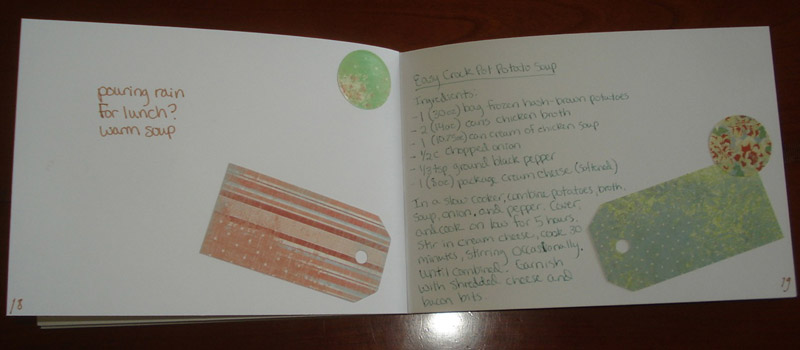 pouring rain
For lunch?
warm soup
18
Easy Crock Pot Potato Soup
Ingredients:
- 1 (30oz) bag frozen hash-brown potatoes
- 2 (14oz) cans chicken broth
- 1 (10.75oz) can cream of chicken soup
- 1/2 c chopped onion
- 1/3 tsp ground black pepper
- 1 (8oz) package cream cheese (softened)
In a slow cooker, combine potatoes, broth,
soup, onion, and pepper. Cover,
and cook on low for 5 hours.
Stir in cream cheese, cook 30
minutes, stirring occasionally,
until combined. Garnish
with shredded cheese and
bacon bits
19